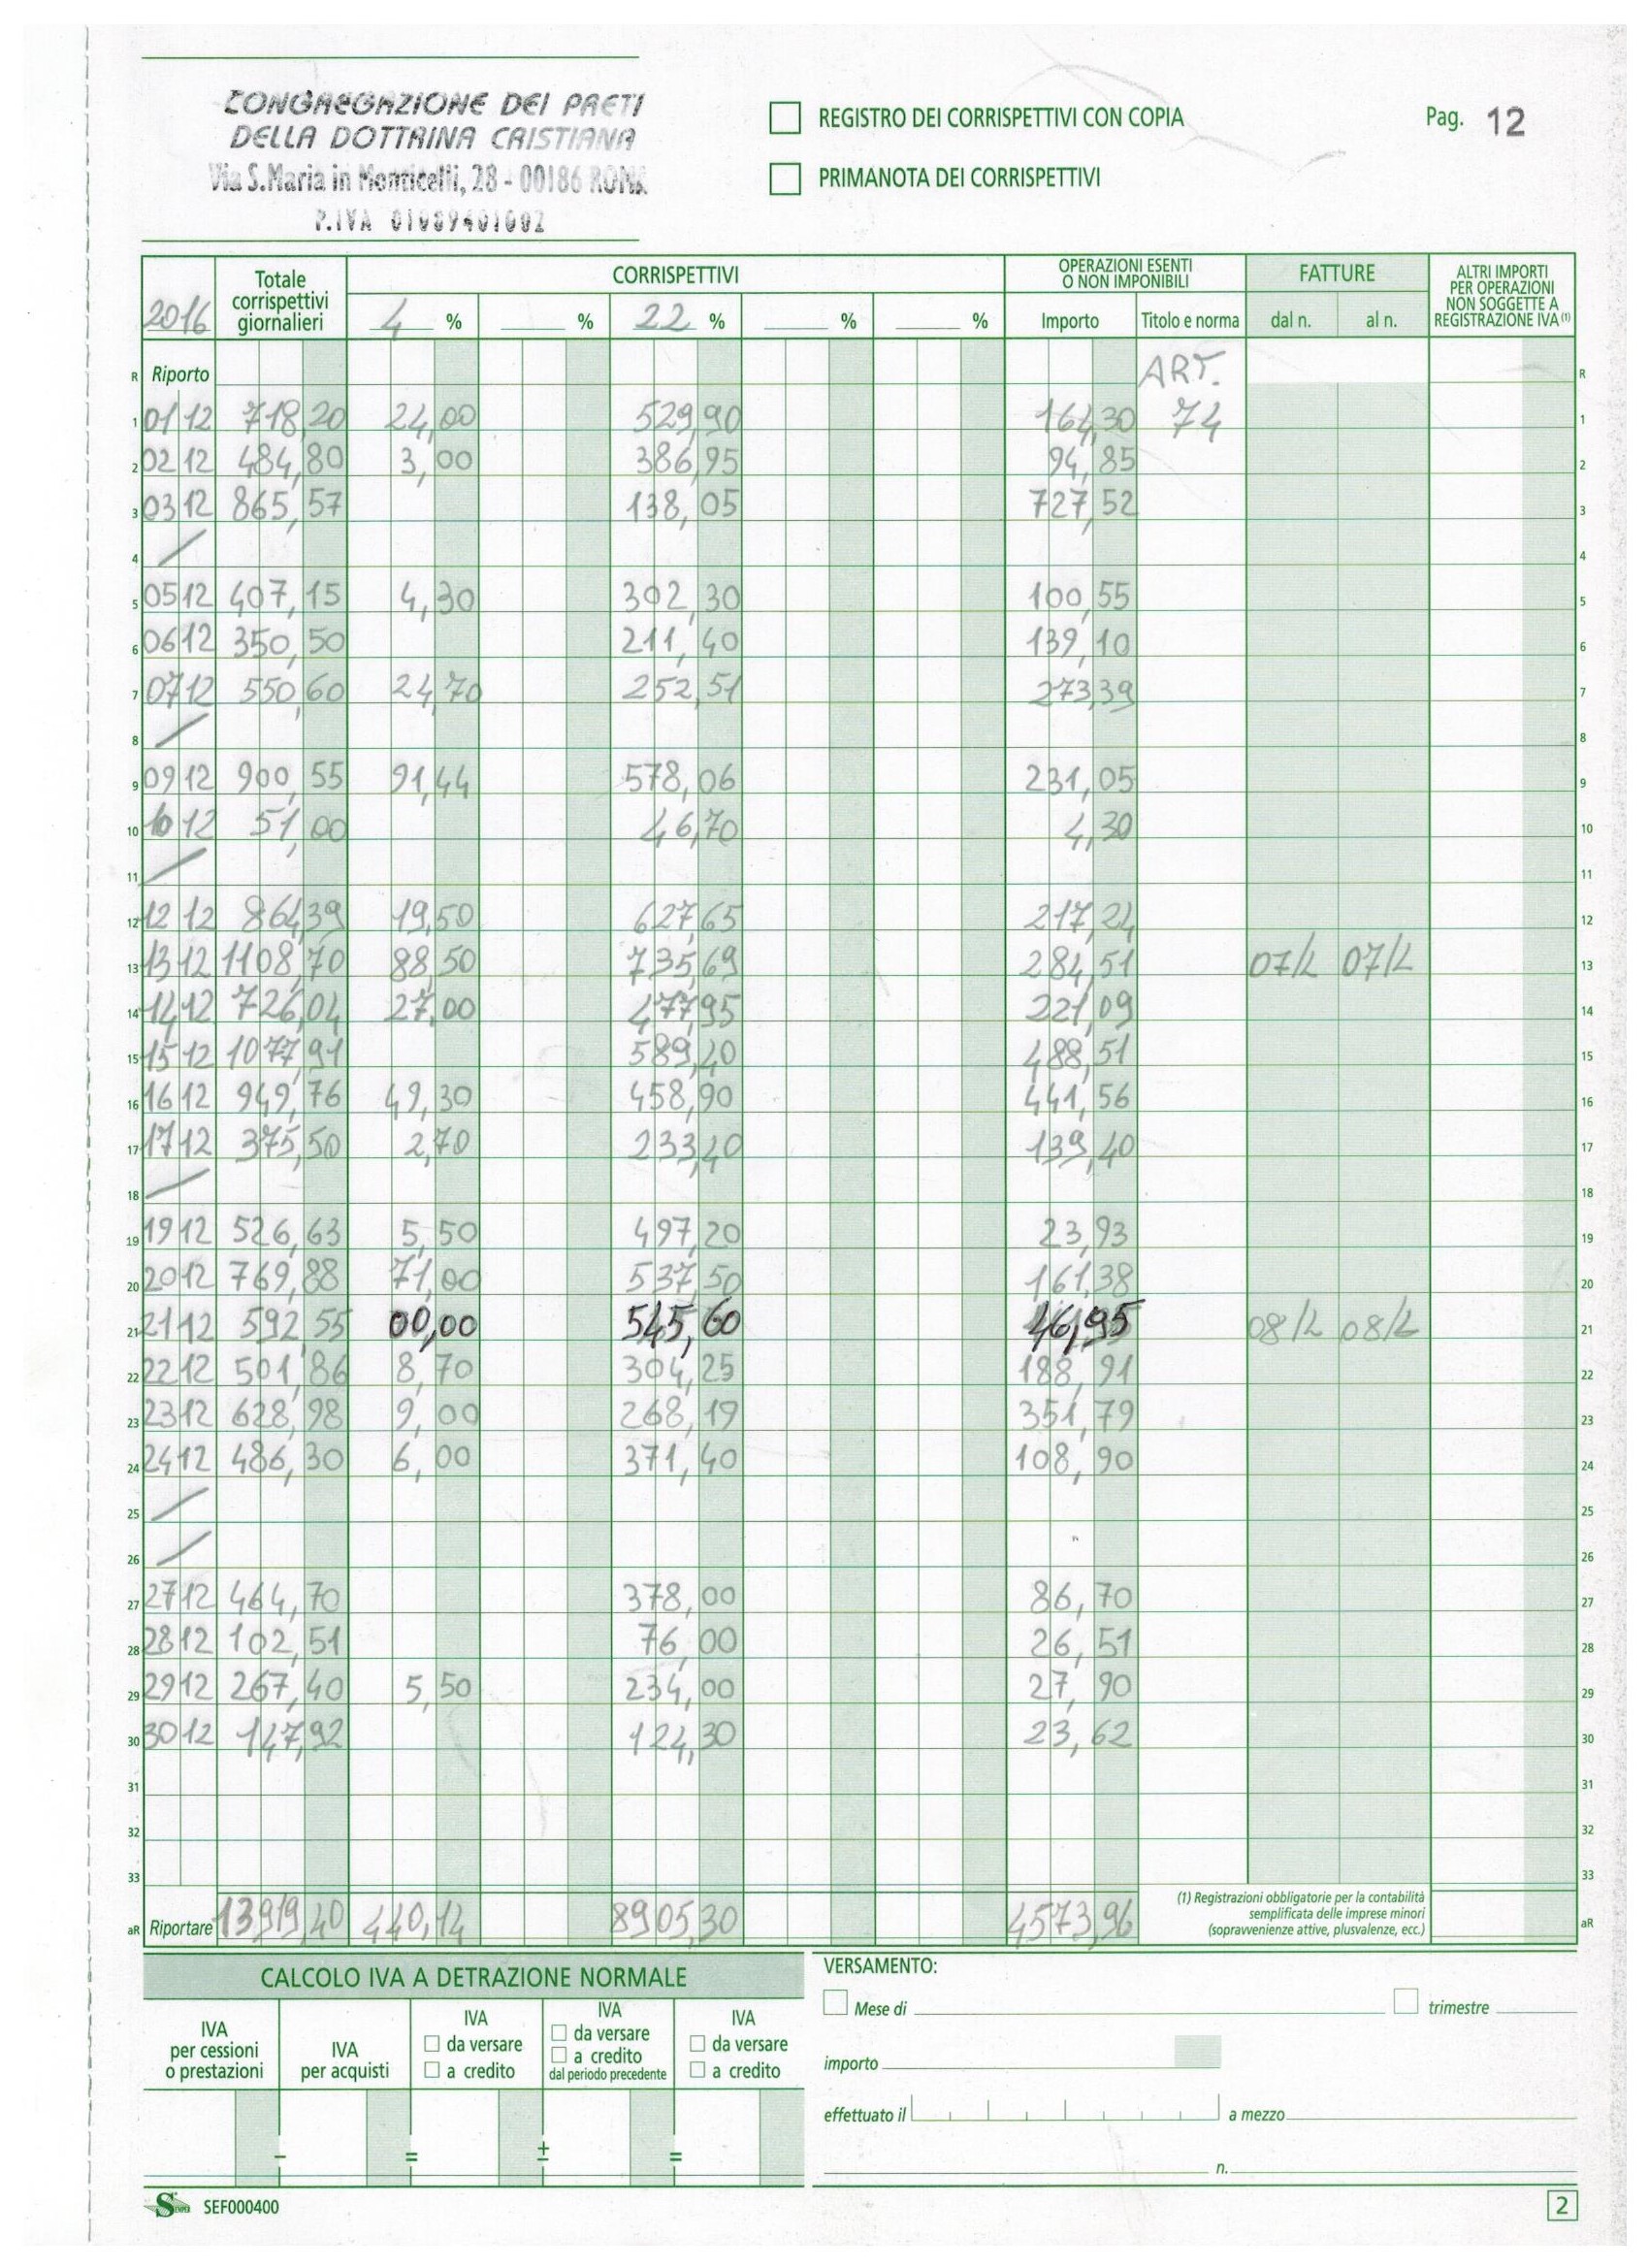 CONGREGAZIONE DEI PRETI
DELLA DOTTRINA CRISTIANA
Via S.Maria in Monticelli, 28 - 00186 ROMA
P.IVA 01089401002
REGISTRO DEI CORRISPETTIVI CON COPIA
PRIMANOTA DEI CORRISPETTIVI
Pag. 12
2016 Totale corrispettivi giornalieri CORRISPETTIVI OPERAZIONI ESENTI O NON IMPONIBILI FATTURE ALTRI IMPORTI PER OPERAZIONI NON SOGGETTE A REGISTRAZIONE IVA (1)
4 % % 22 % % % Importo Titolo e norma dal n. al n.
R Riporto ART. R
1 01 12 718,20 24,00 529,90 164,30 74 1
2 02 12 484,80 3,00 386,95 94,85 2
3 03 12 865,57 138,05 727,52 3
4 / 4
5 05 12 407,15 4,30 302,30 100,55 5
6 06 12 350,50 211,40 139,10 6
7 07 12 550,60 24,70 252,51 273,39 7
8 / 8
9 09 12 900,55 91,44 578,06 231,05 9
10 10 12 51,00 46,70 4,30 10
11 / 11
12 12 12 864,39 19,50 627,65 217,24 12
13 13 12 1108,70 88,50 735,69 284,51 07/L 07/L 13
14 14 12 726,04 27,00 477,95 221,09 14
15 15 12 1077,91 589,40 488,51 15
16 16 12 949,76 49,30 458,90 441,56 16
17 17 12 375,50 2,70 233,40 139,40 17
18 / 18
19 19 12 526,63 5,50 497,20 23,93 19
20 20 12 769,88 71,00 537,50 161,38 20
21 21 12 592,55 00,00 545,60 46,95 08/L 08/L 21
22 22 12 501,86 8,70 304,25 188,91 22
23 23 12 628,98 9,00 268,19 351,79 23
24 24 12 486,30 6,00 371,40 108,90 24
25 / 25
26 / 26
27 27 12 464,70 378,00 86,70 27
28 28 12 102,51 76,00 26,51 28
29 29 12 267,40 5,50 234,00 27,90 29
30 30 12 147,92 124,30 23,62 30
31 31
32 32
33 33
aR Riportare 13919,40 440,14 8905,30 4573,96 aR
(1) Registrazioni obbligatorie per la contabilità
semplificata delle imprese minori
(sopravvenienze attive, plusvalenze, ecc.)
CALCOLO IVA A DETRAZIONE NORMALE
IVA per cessioni o prestazioni
IVA per acquisti
IVA da versare a credito
IVA da versare a credito dal periodo precedente
IVA da versare a credito
- = ± =
VERSAMENTO:
Mese di trimestre
importo
effettuato il a mezzo
n.
SEF000400
2